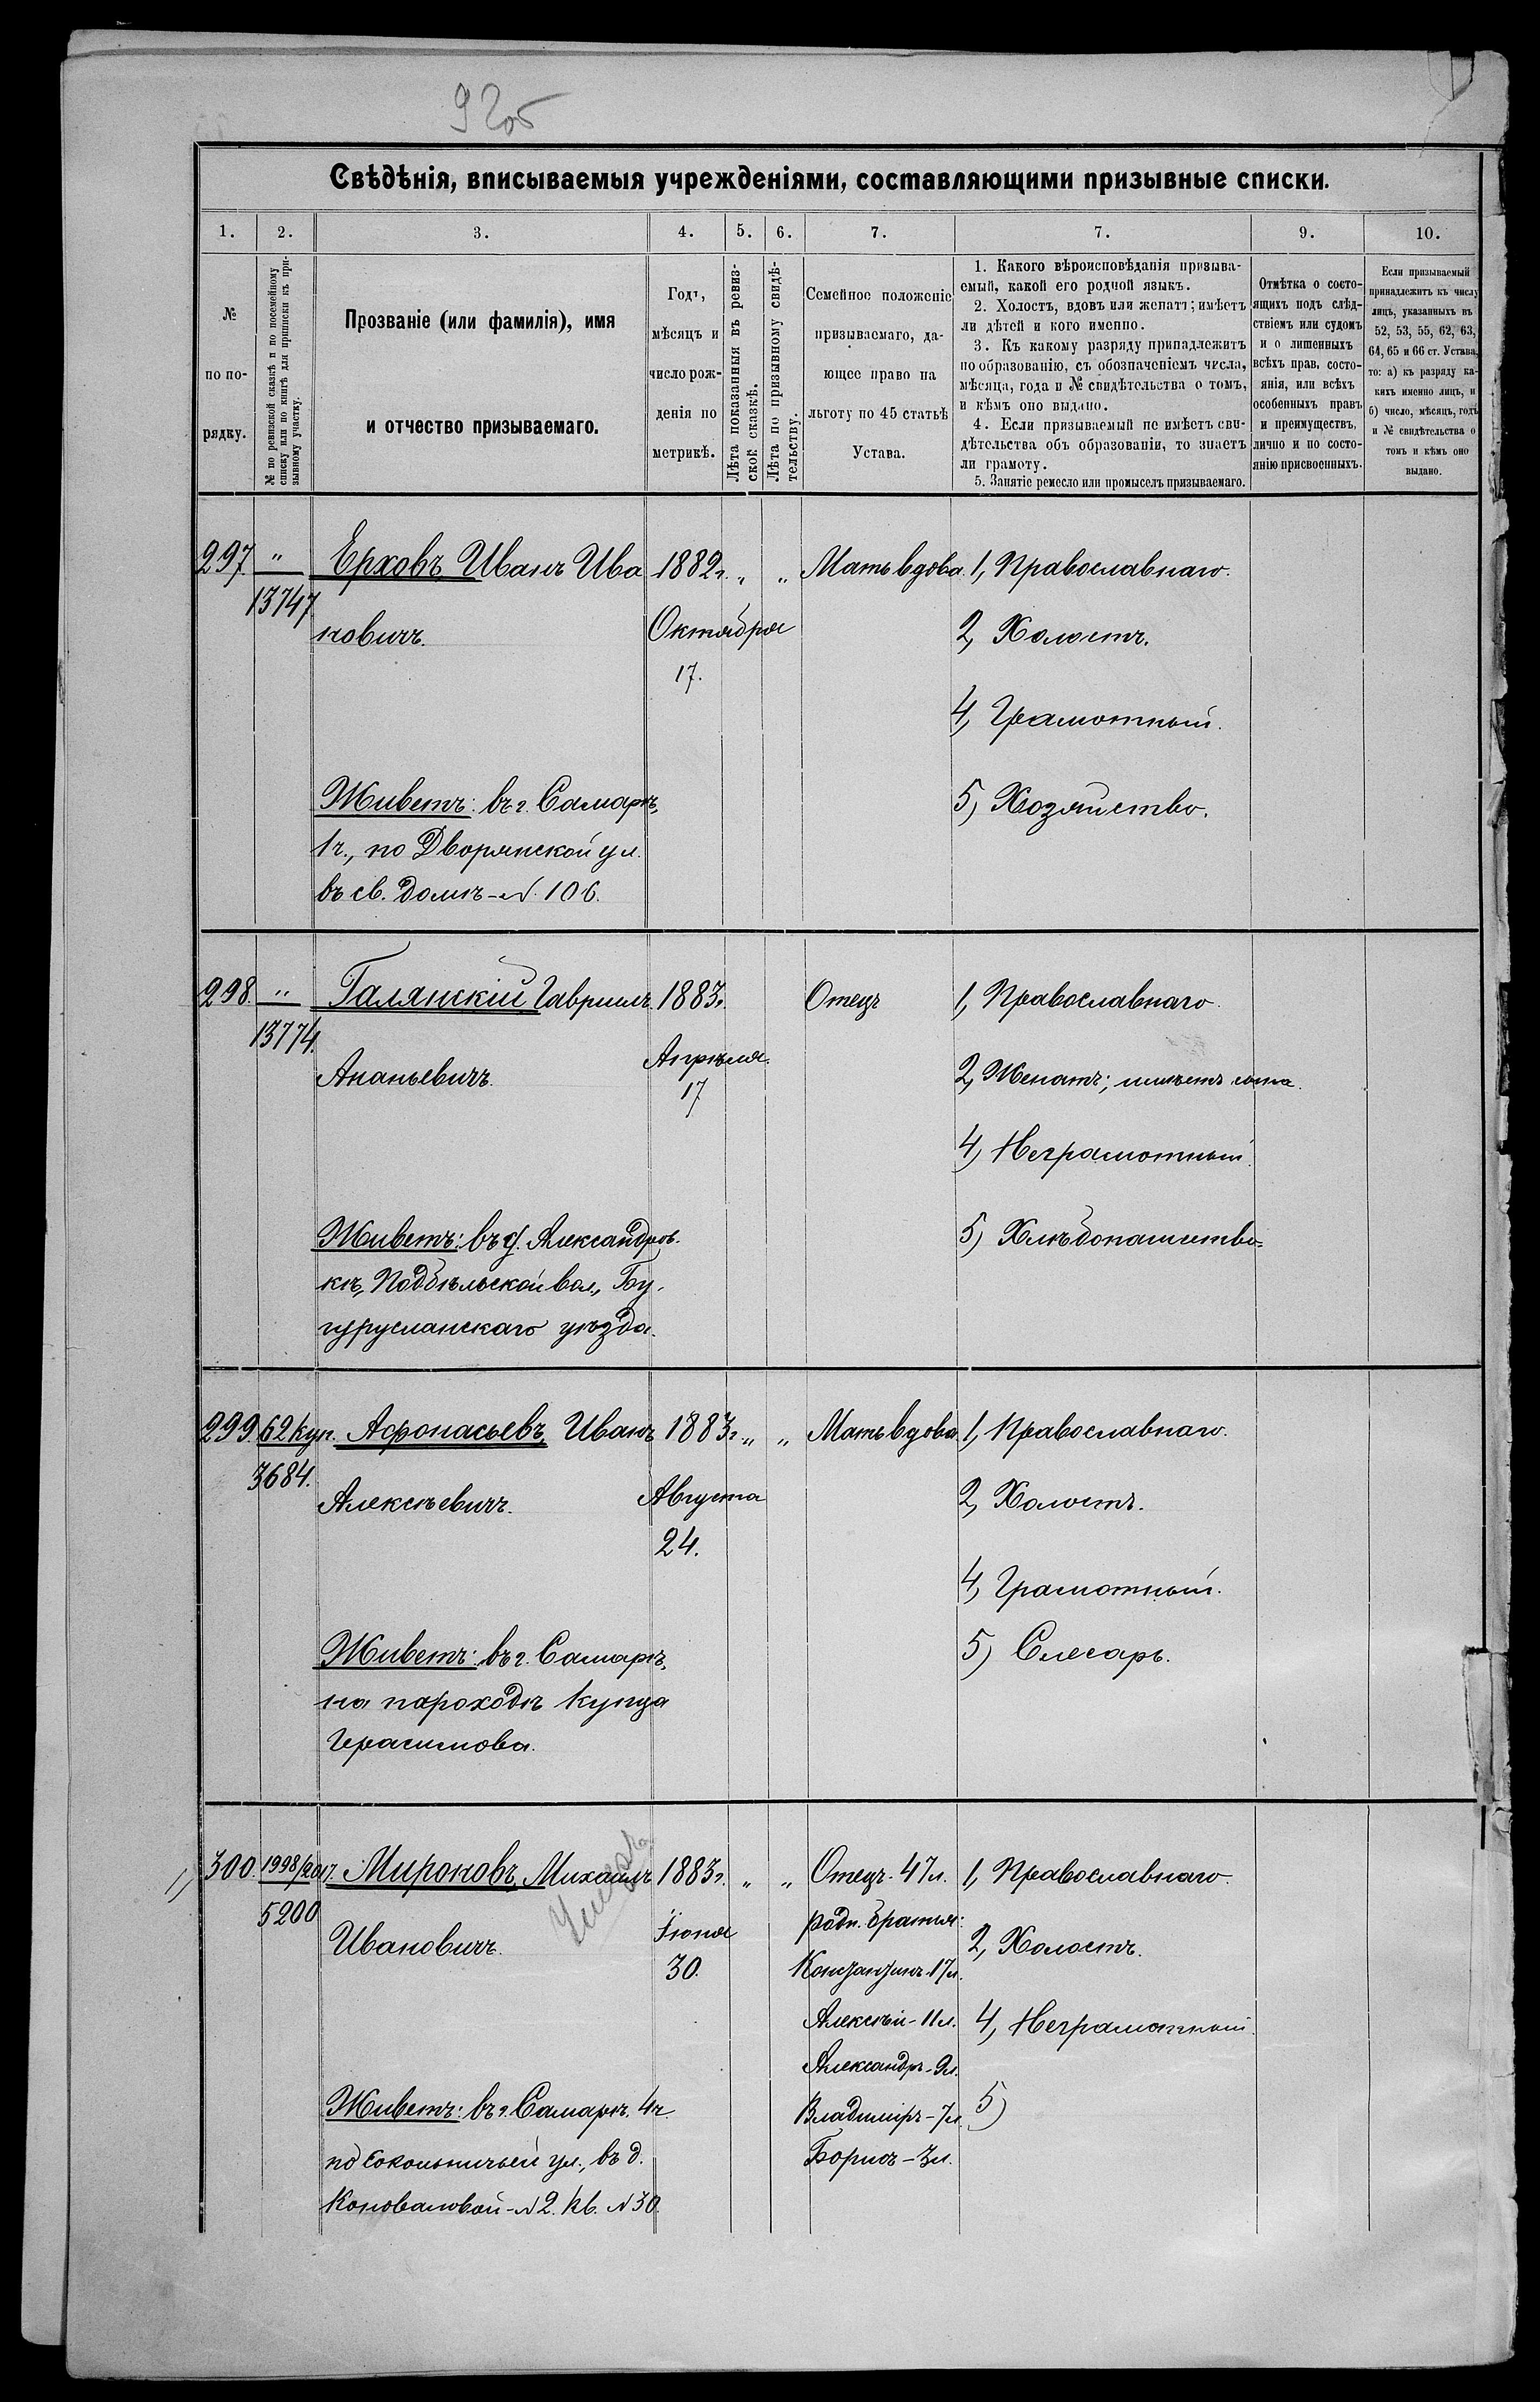 92об
Свѣдѣнія, вписываемыя учрежденіями, составляющими призывные списки.
1. 2. 3. 4. 5. 6. 7. 7. 9. 10.
№
по по-
рядку.
№ по ревизской сказкѣ и по посемейному
списку или по книгѣ для приписки къ при-
зывному участку.
Прозваніе (или фамилія), имя
и отчество призываемаго.
Годъ,
мѣсяцъ и
число рож-
денія по
метрикѣ.
Лѣта показанныя въ ревиз-
ской сказкѣ.
Лѣта по призывному свидѣ-
тельству.
Семейное положеніе
призываемаго, да-
ющее право на
льготу по 45 статьѣ
Устава.
1. Какого вѣроисповѣданія призыва-
емый, какой его родной языкъ.
2. Холостъ, вдовъ или женатъ; имѣетъ
ли дѣтей и кого именно.
3. Къ какому разряду принадлежитъ
по образованію, съ обозначеніемъ числа,
мѣсяца, года и № свидѣтельства о томъ,
и кѣмъ оно выдано.
4. Если призываемый не имѣетъ сви-
дѣтельства объ образованіи, то знаетъ
ли грамоту.
5. Занятіе ремесло или промыселъ призываемаго.
Отмѣтка о состо-
ящихъ подъ слѣд-
ствіемъ или судомъ
и о лишенныхъ
всѣхъ прав, состо-
янія, или всѣхъ
особенныхъ правъ
и преимуществъ,
лично и по состо-
янію присвоенныхъ.
Если призываемый
принадлежитъ къ числу
лицъ, указанныхъ въ
52, 53, 55, 62, 63,
64, 65 и 66 ст. Устава,
то: а) къ разряду ка-
кихъ именно лицъ, и
б) число, мѣсяцъ, годъ
и № свидѣтельства о
томъ и кѣмъ оно
выдано.
297. " Ерховъ Иванъ Ива 1882г. " " Мать вдова. 1, Православнаго.
13747
новичъ. Октября 2, Холостъ.
17.
4, Грамотный.
Живетъ: въ г. Самарѣ, 5) Хозяйство.
1ч., по Дворянской ул.
въ св. домѣ - № 106.
298. " Галянскій Гавріилъ 1883г. Отецъ 1, Православнаго
13774.
Ананьевичъ. Апрѣля. 2, Женатъ; имѣетъ сына.
17
4) Неграмотный.
Живетъ: въ д. Александров- 5) Хлѣбопашество
кѣ, Подбѣльской вол., Бу-
гурусланскаго уѣзда.
299. 62 куп. Афонасьевъ, Иванъ 1883г. " " Мать вдова. 1, Православнаго.
3684.
Алексѣевичъ. Августа 2, Холостъ.
24.
4, Грамотный.
Живетъ: въ г. Самарѣ, 5) Слесарь.
на пароходѣ купца
Герасимова.
300. 1998/ Мироновъ, Михаилъ 1883г. " " Отецъ - 47л. 1, Православнаго
5200
Ивановичъ. Іюня родн. братья: 2, Холостъ.
30. Константинъ - 17л.
Алексѣй - 11л. 4, Неграмотный.
Александръ - 9л.
Живетъ: въ г. Самарѣ. 4ч. Владиміръ - 7л. 5)
по Сокольничьей ул., въ д. Борисъ - 3л.
Коноваловой - № 2. кв. № 30.